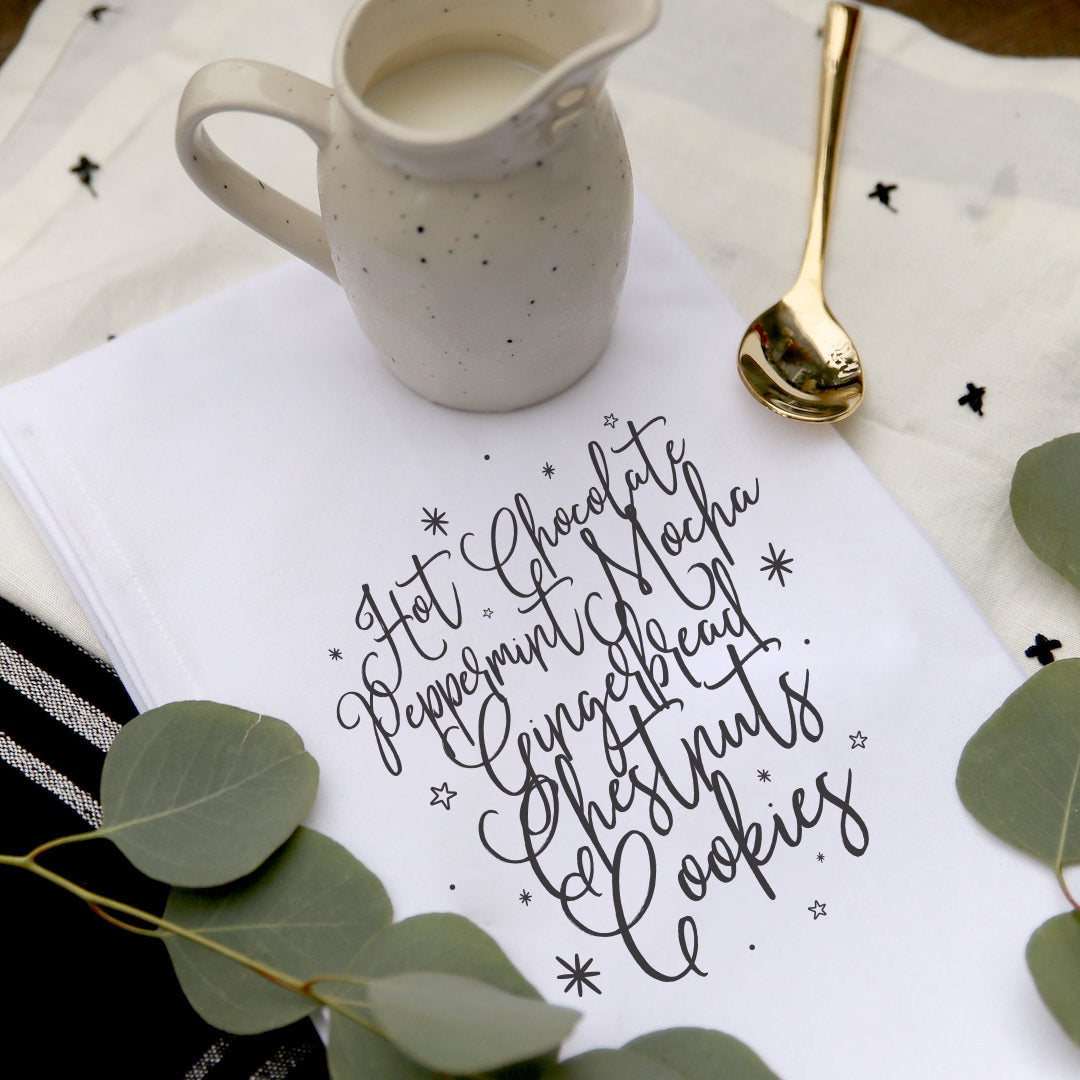 Hot Chocolate
Peppermint Mocha
Gingerbread
Chestnuts
& Cookies